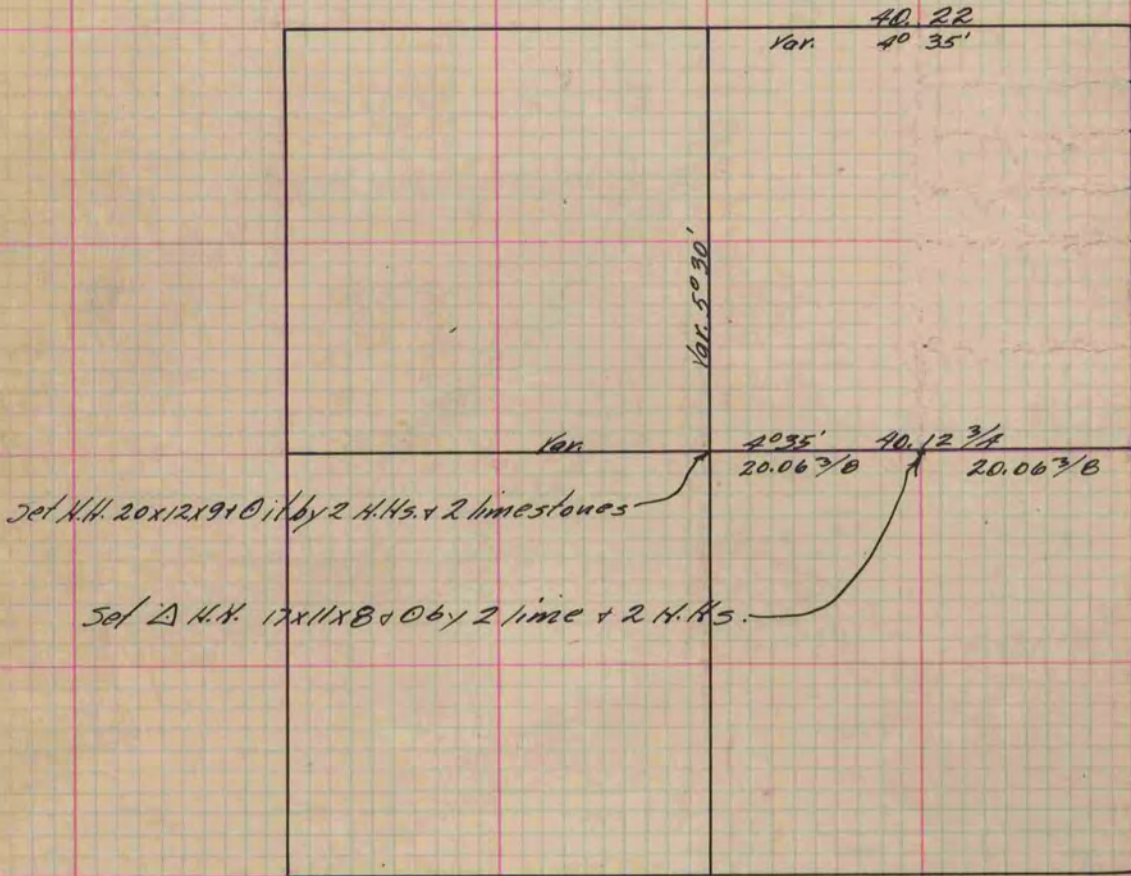 40.22
Var. 4° 35'
Var. 5° 30'
Var. 4° 35' 40.12 3/4
20.06 3/8 20.06 3/8
Set N.H. 20x12x9 & ⊙ it by 2 N.Hs. & 2 limestones
Set △ N.H. 17x11x8 & ⊙ by 2 lime & 2 N.Hs.